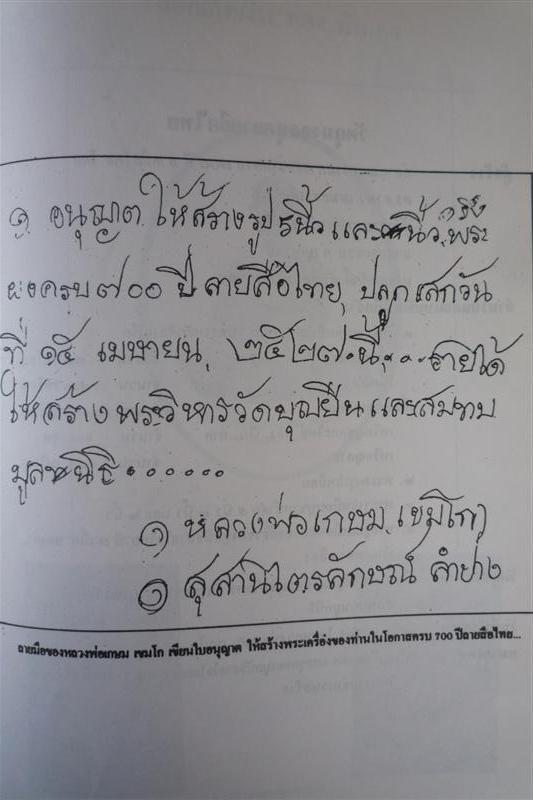 ๑ อนุญาต ให้สร้างรูป ๕นิ้ว และ๙นิ้ว.พระ
กริ่ง
ผงครบ๗๐๐ ปี ลายสือไทย, ปลุกเสกวัน
ที่ ๑๕ เมษายน, ๒๕๒๗.นี้... รายได้
ให้สร้างพระวิหารวัดบุญยืนและสมทบ
มูลนิธิ......
๑ หลวงพ่อเกษม เขมิโก)
๑ สุสานไตรลักษณ์ ลำปาง
ลายมือของหลวงพ่อเกษม เขมโก เขียนใบอนุญาต ให้สร้างพระเครื่องของท่านในโอกาสครบ 700 ปีลายสือไทย...